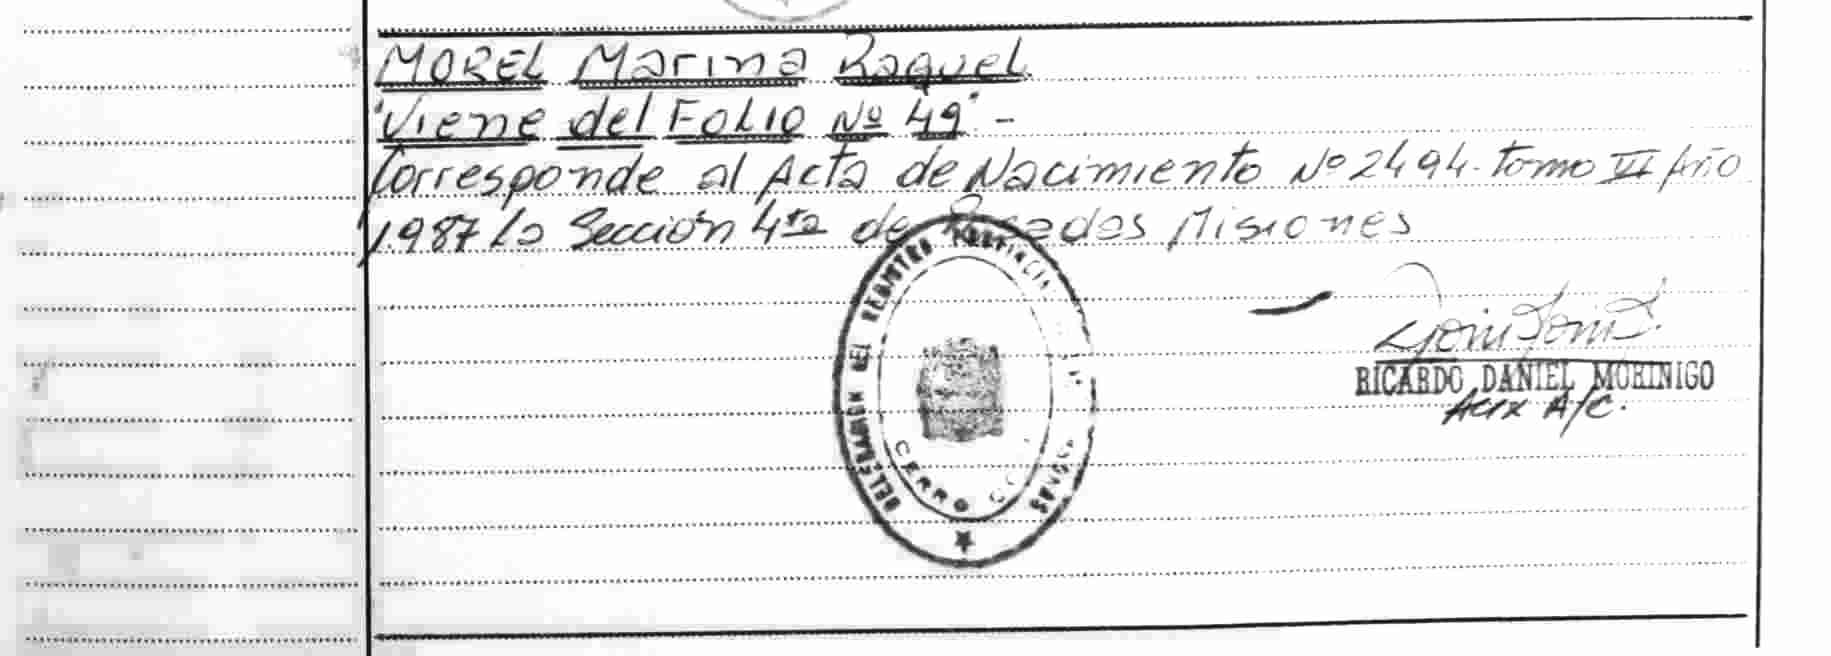 MOREL Marina Raquel
"Viene del Folio Nº 49" -
Corresponde al Acta de Nacimiento Nº 2494. tomo VI Año
1987 La Sección 4ta de Posadas Misiones
DELEGACION DEL REGISTRO PROVINCIAL
CERRO
RICARDO DANIEL MORINIGO
Aux A/C.